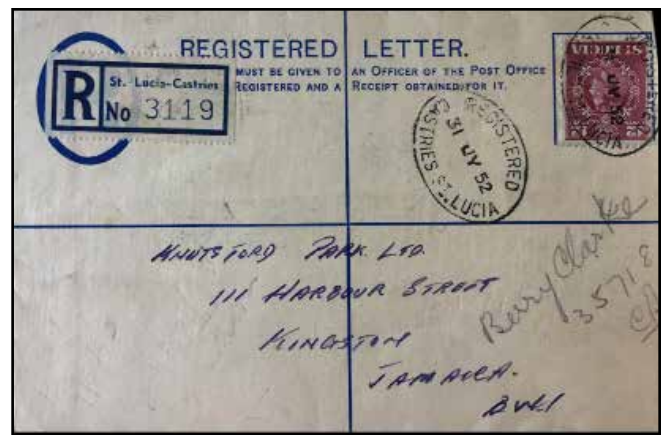 REGISTERED LETTER.
MUST BE GIVEN TO AN OFFICER OF THE POST OFFICE
REGISTERED AND A RECEIPT OBTAINED FOR IT.
R
St. Lucia-Castries
No 3119
ST LUCIA
REGISTERED
31 JY 52
CASTRIES ST. LUCIA
KNUTSFORD PARK LTD.
111 HARBOUR STREET
KINGSTON
JAMAICA.
BWI
Clarke
35718